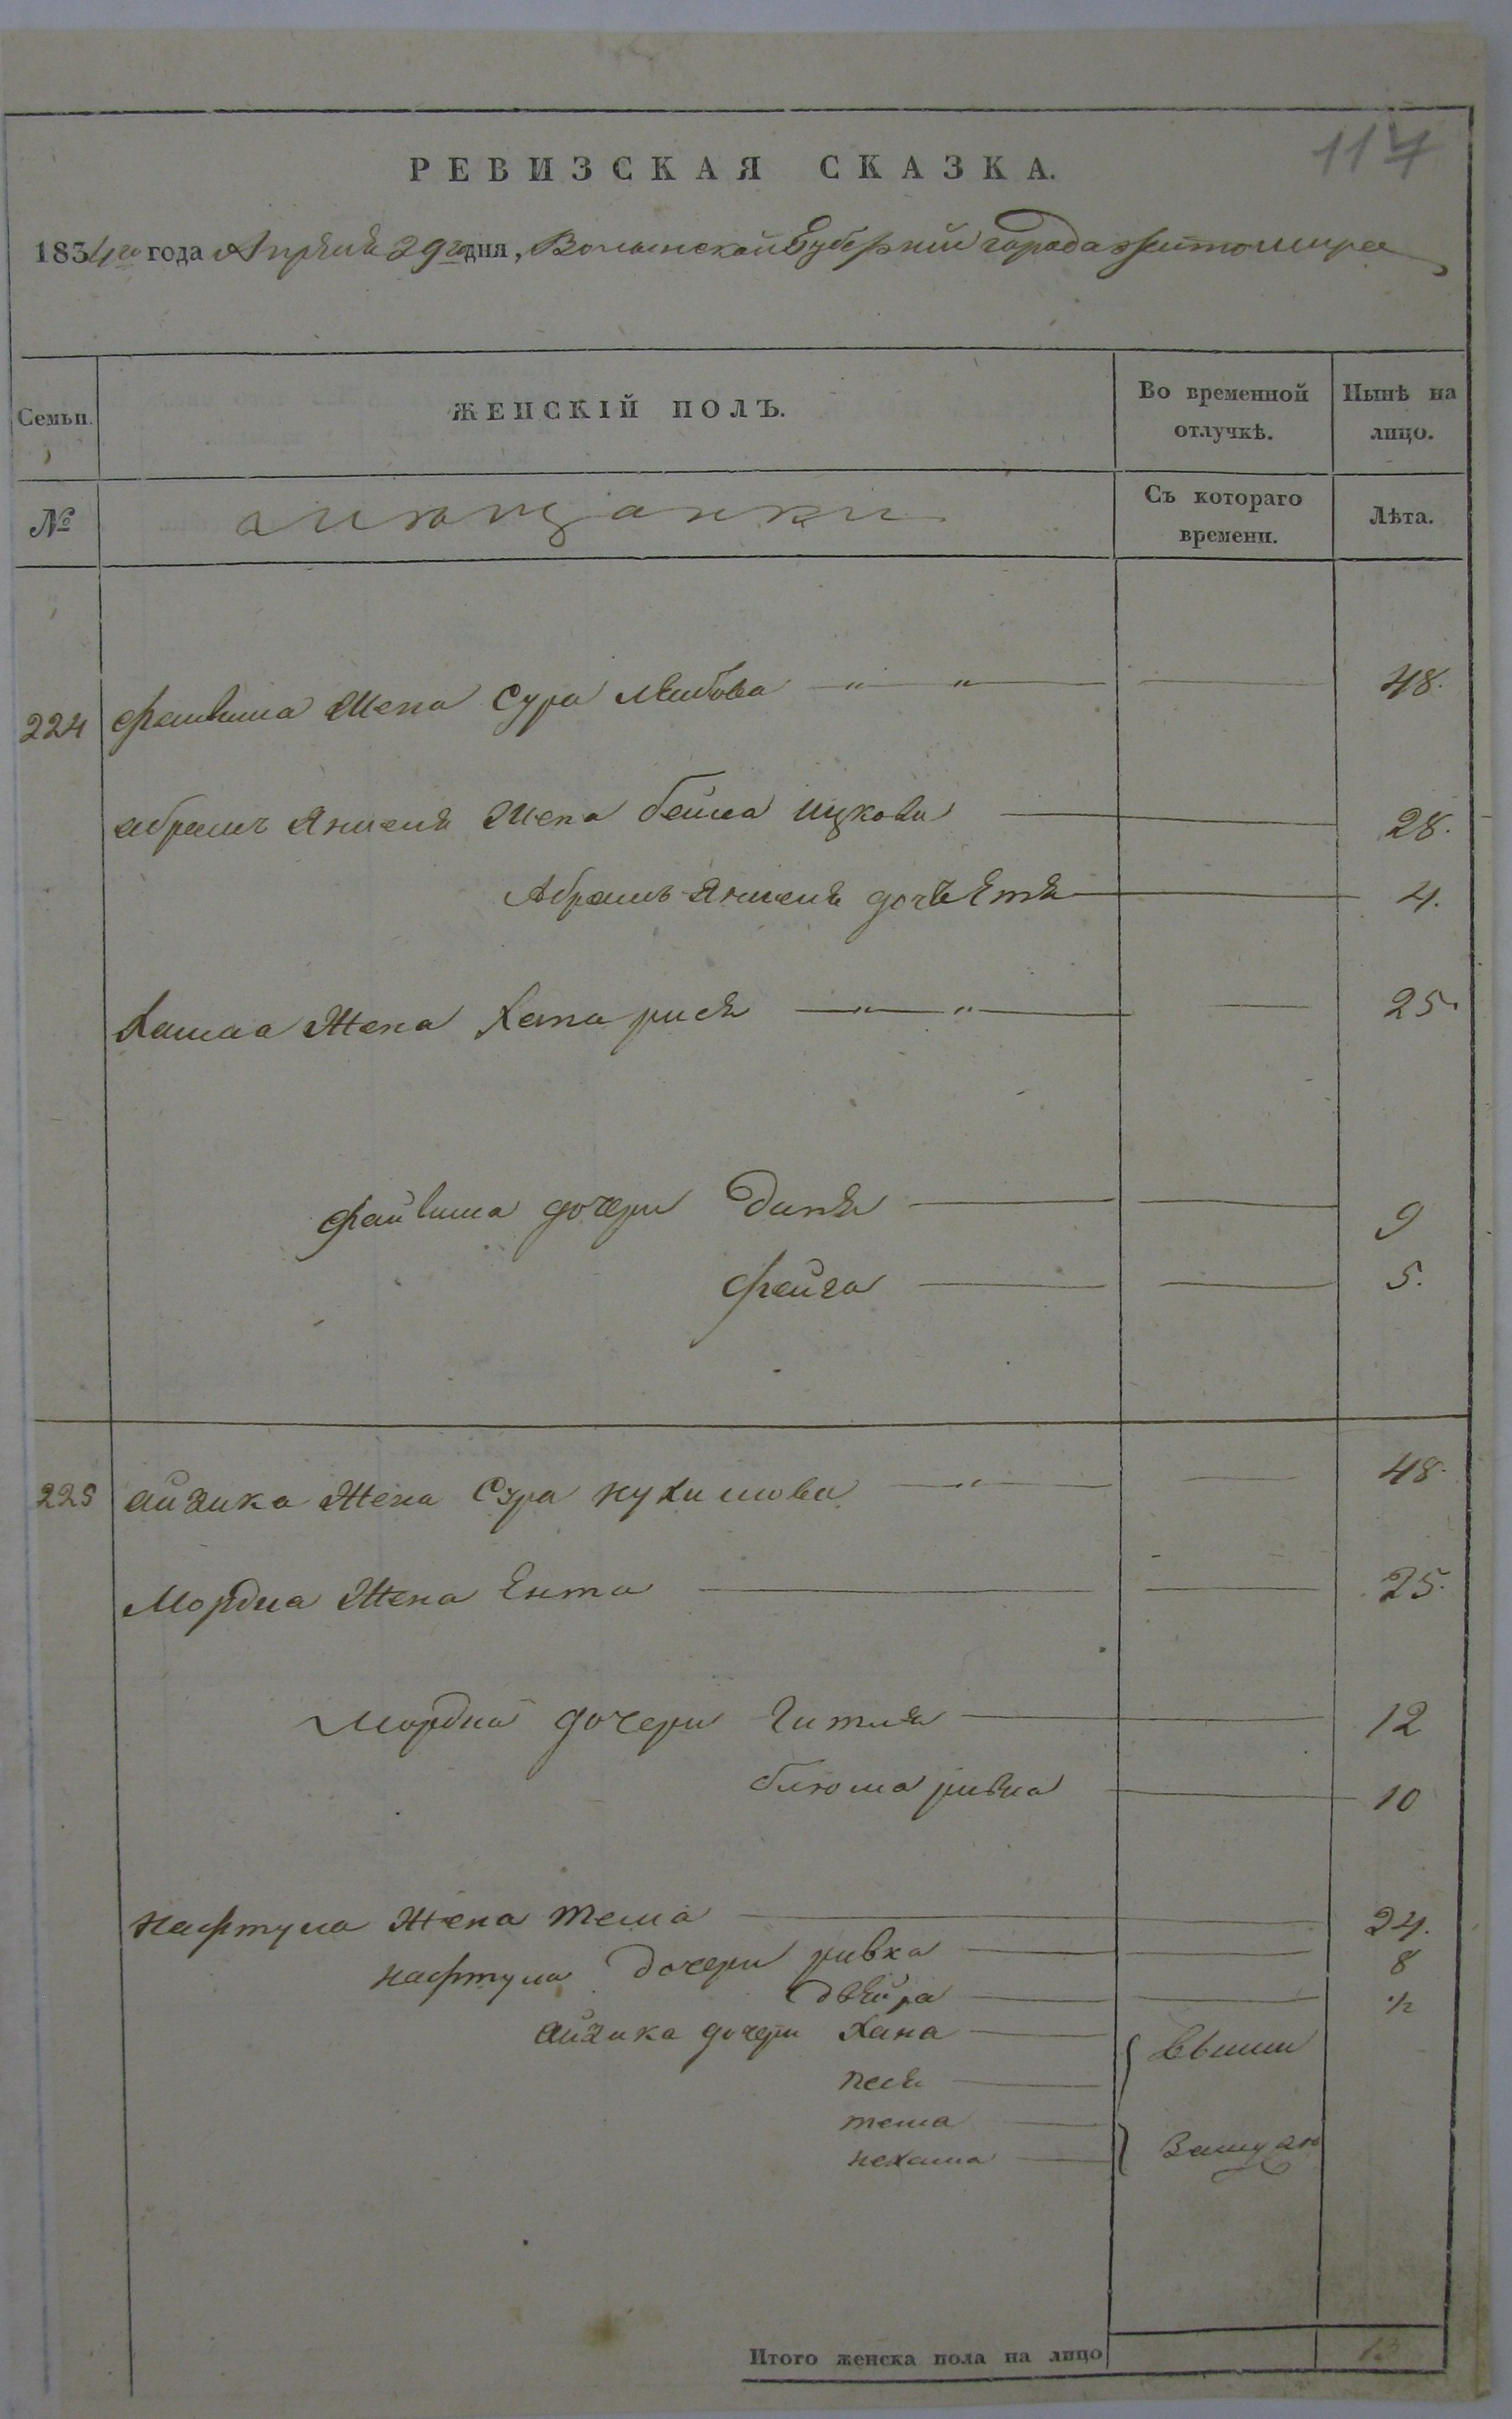 117
РЕВИЗСКАЯ СКАЗКА.
1834го года Апреля 29го дня, Волынской Губернии города Житомира
Семьи. ЖЕНСКІЙ ПОЛЪ. Во временной отлучкѣ. Нынѣ на лицо.
№ Съ котораго времени. Лѣта.
224 Файвиша Жена Сура Лейбова 48.
Абрамъ Янкеля Жена бейла Ицкова 28.
Абрамъ Янкеля дочь Етя 4.
Жена Хана рися 25.
Файвиша дочери Диня 9
Фейга 5.
225 Айзика Жена Сура Нухимова 48.
Мордка Жена Ента 25.
Мордка дочери Гитля 12
блюма ривка 10
Нафтула Жена Тема 24.
Нафтула дочери ривка 8
Двейра ½
Айзика дочери Хана
песя
Вышли
тема
нехама
Замуж
Итого женска пола на лицо 13